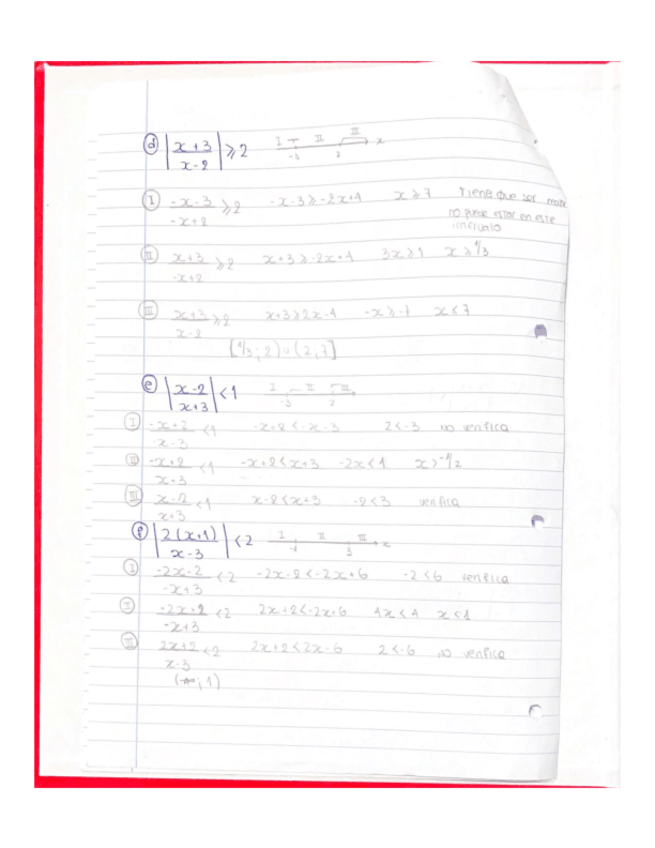 d) |x+3 / x-2| ⩾ 2   I II III x
-3 2
I) -x-3 / -x+2 ⩾ 2   -x-3 ⩾ -2x+4   x ⩾ 7   Tiene que ser
no puede estar en este
intervalo
II) x+3 / -x+2 ⩾ 2   x+3 ⩾ -2x+4   3x ⩾ 1   x ⩾ 1/3
III) x+3 / x-2 ⩾ 2   x+3 ⩾ 2x-4   -x ⩾ -7   x < 7
[1/3; 2) ∪ (2; 7]
e) |x-2 / x+3| < 1   I II III
-3 2
I) -x+2 / -x-3 < 1   -x+2 < -x-3   2 < -3   no verifica
II) -x+2 / x+3 < 1   -x+2 < x+3   -2x < 1   x > -1/2
III) x-2 / x+3 < 1   x-2 < x+3   -2 < 3   verifica
f) |2(x+1) / x-3| < 2   I II III x
-1 3
I) -2x-2 / -x+3 < 2   -2x-2 < -2x+6   -2 < 6   verifica
II) -2x+2 / -x+3 < 2   2x+2 < -2x+6   4x < 4   x < 1
III) 2x+2 / x-3 < 2   2x+2 < 2x-6   2 < -6   no verifica
(-∞; 1)